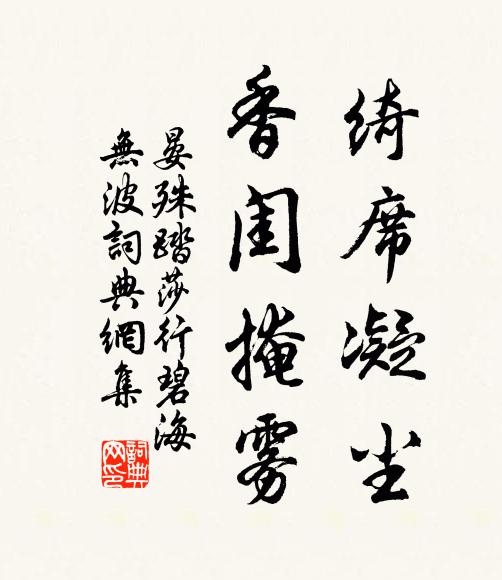 綺席凝尘
香闺掩雾
晏殊踏莎行碧海
無波詞典網集
詞典网印